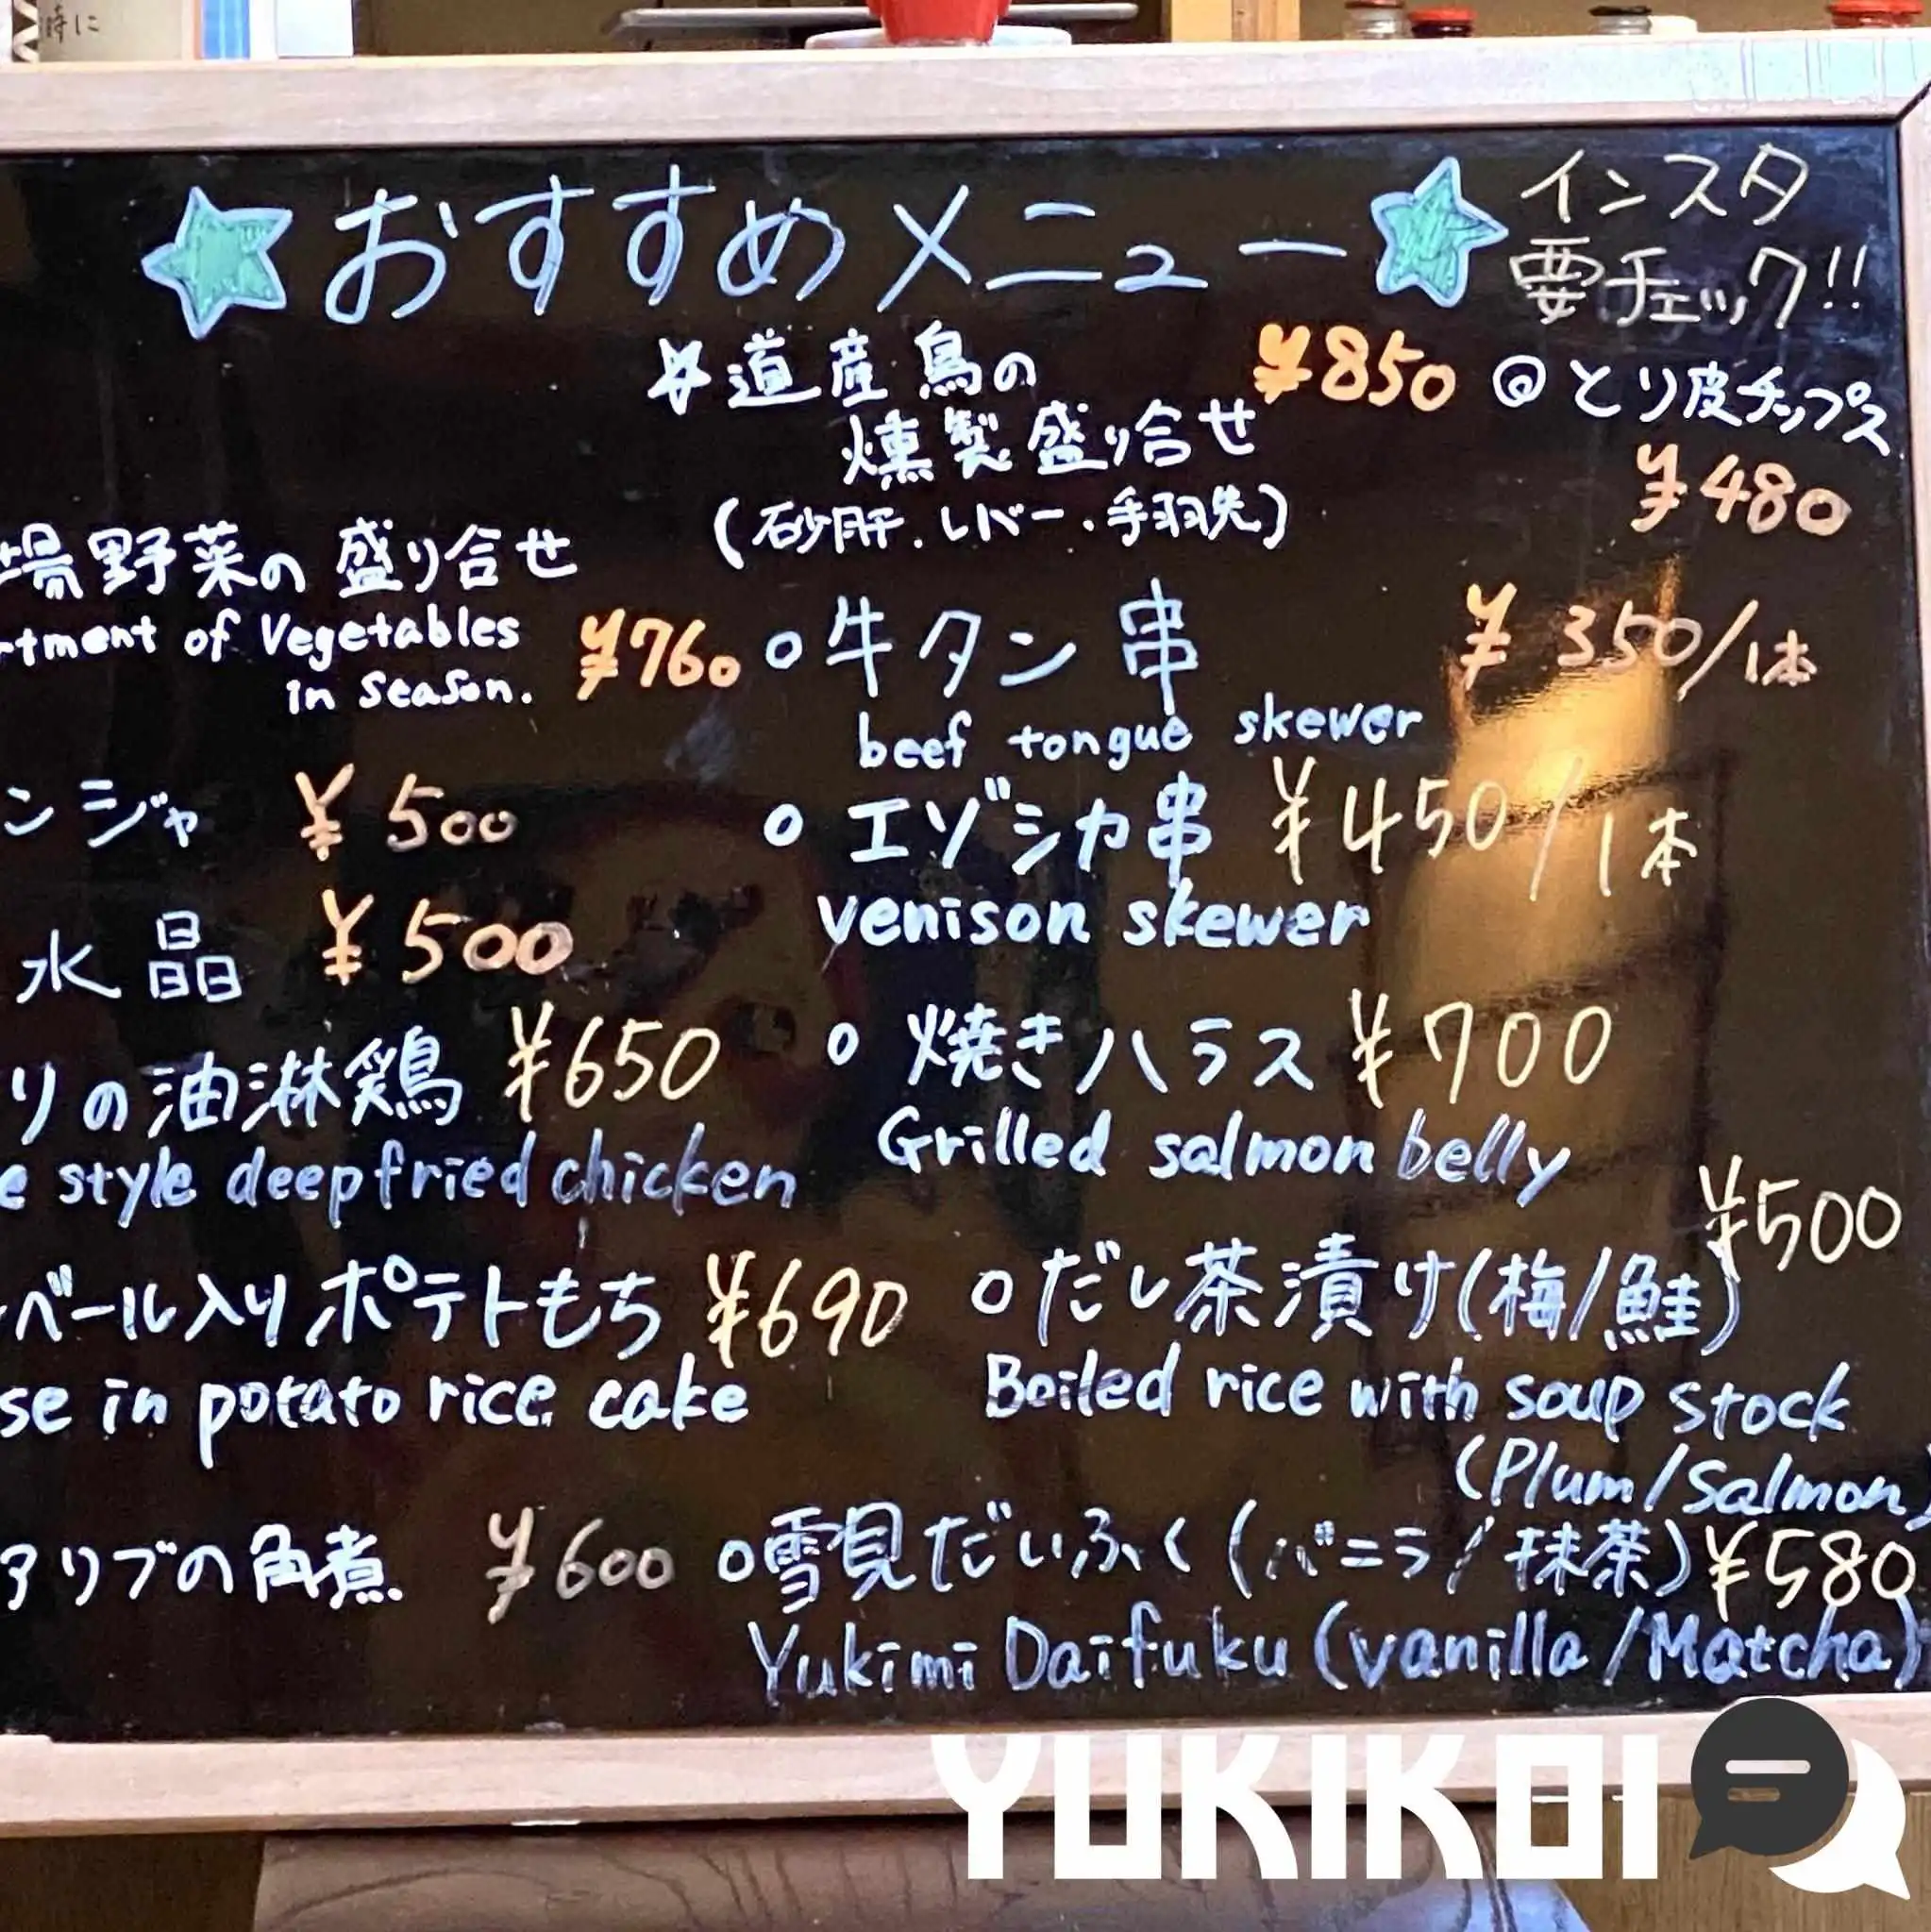 時に
おすすめメニュー
インスタ
要チェック!!
道産鳥の
燻製盛り合せ
(砂肝.レバー.手羽先)
¥850
@とり皮チップス
¥480
場野菜の盛り合せ
rtment of Vegetables
in season.
¥760
ンジャ ¥500
水晶 ¥500
りの油淋鶏 ¥650
e style deepfried chicken
ベール入りポテトもち ¥690
se in potato rice cake
アリブの角煮 ¥600
○牛タン串 ¥350/1本
beef tongue skewer
○エゾシカ串 ¥450/1本
venison skewer
○焼きハラス ¥700
Grilled salmon belly
○だし茶漬け(梅/鮭) ¥500
Boiled rice with soup stock
(Plum/Salmon)
○雪見だいふく(バニラ/抹茶) ¥580
Yukimi Daifuku (vanilla/Matcha)
YUKIKOI